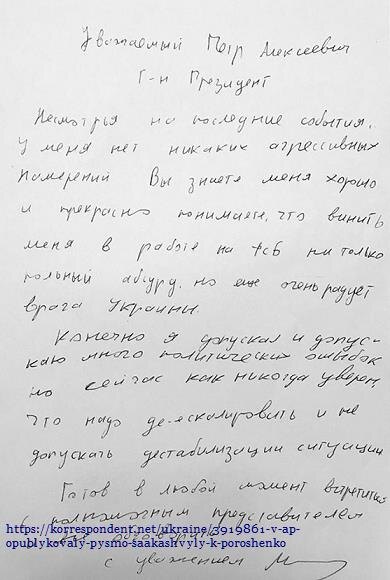 Уважаемый Петр Алексеевич
Г-н Президент
Несмотрья на последние события,
у меня нет никаких агрессивных
намерений Вы знаете меня хорошо
и прекрасно понимаете, что винить
меня в работе на ФСБ не только
полный абсурд, но еще очень радует
врага Украины.
Конечно я допускал и допус-
каю много политических ошибок
но сейчас как никогда уверен,
что надо де-эскалировать и не
допускать дестабилизации ситуации
Готов в любой момент встретиться
с полномочным представителем
https://korrespondent.net/ukraine/3919861-v-ap-
opublykovaly-pysmo-saakashvyly-k-poroshenko
с уважением